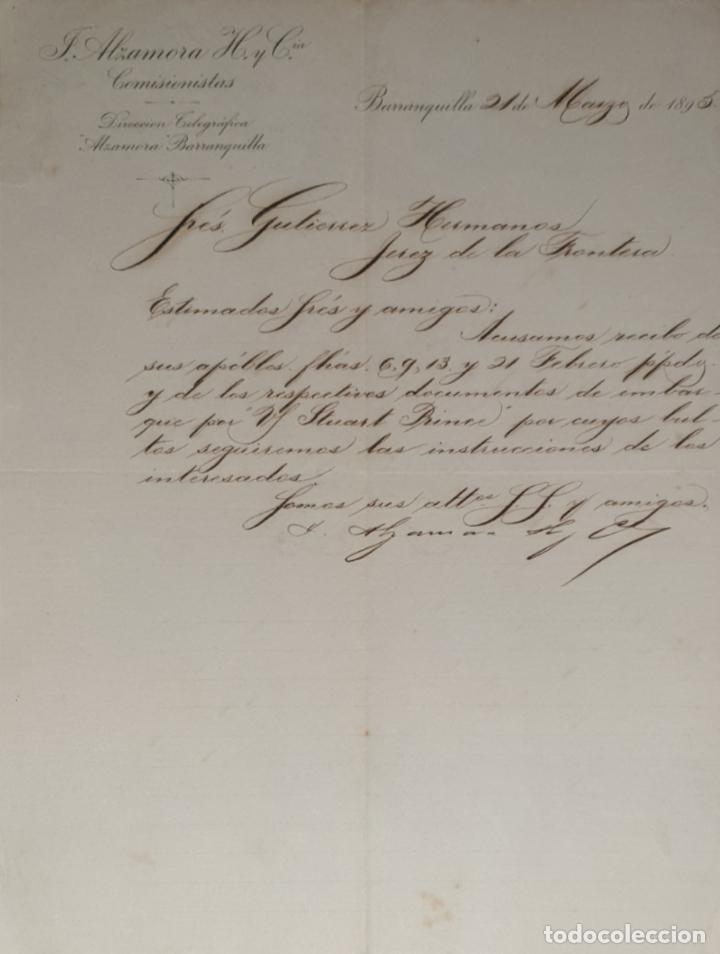 F. Alzamora H. y Cia
Comisionistas
Direccion Telegráfica
"Alzamora" Barranquilla
Barranquilla 21 de Marzo de 1895
Srés. Gutierrez Hermanos
Jerez de la Frontera
Estimados Srés y amigos:
Acusamos recibo de
sus apébles. fhas. 6, 9, 13 y 21 Febrero ppdo.
y de los respectivos documentos de embar-
que por "V/ Stuart Prince" por cuyos bul-
tos seguiremos las instrucciones de los
interesados.
Somos sus attos S.S. y amigos.
F. Alzamora H y C
todocoleccion